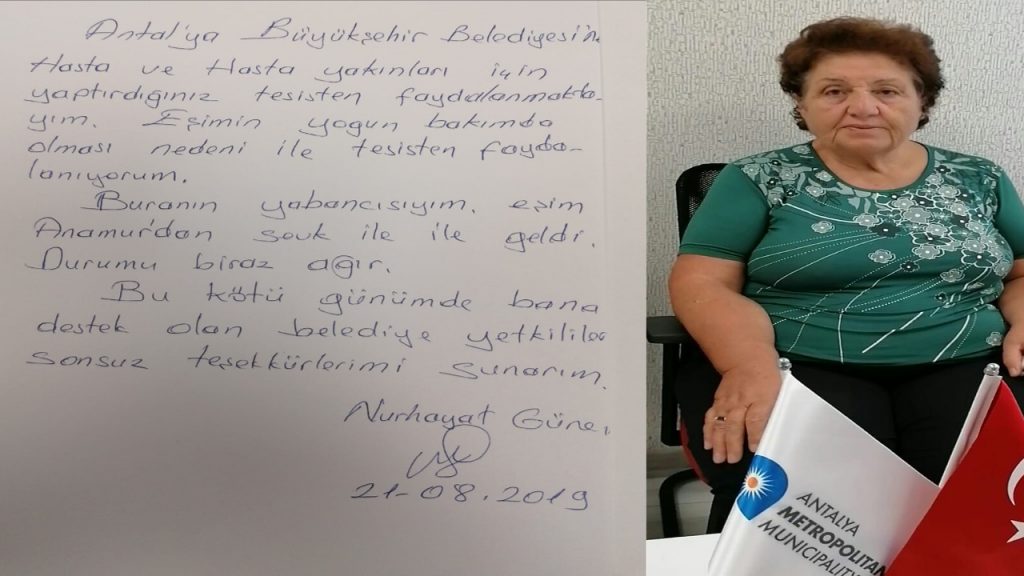 Antalya Büyükşehir Belediyesi'n
Hasta ve Hasta yakınları için
yaptırdığınız tesisten faydalanmakta-
yım. Eşimin yogun bakımda
olması nedeni ile tesisten fayda-
lanıyorum.
Buranın yabancısıyım. eşim
Anamur'dan sevk ile ile geldi.
Durumu biraz ağır.
Bu kötü günümde bana
destek olan belediye yetkilile
sonsuz teşekkürlerimi sunarım.
Nurhayat Güne
21-08.2019
ANTALYA
METROPOLITAN
MUNICIPALITY